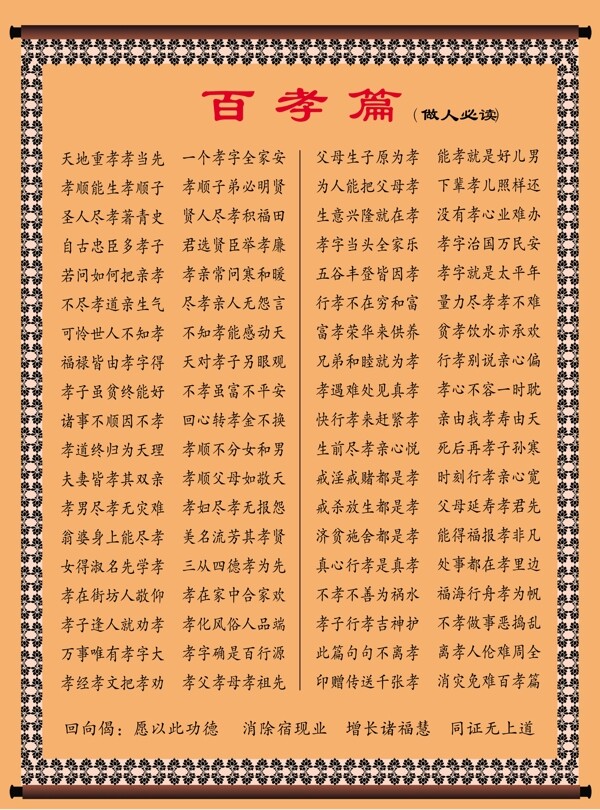 百孝篇（做人必读）
天地重孝孝当先 一个孝字全家安
孝顺能生孝顺子 孝顺子弟必明贤
圣人尽孝著青史 贤人尽孝积福田
自古忠臣多孝子 君选贤臣举孝廉
若问如何把亲孝 孝亲常问寒和暖
不尽孝道亲生气 尽孝亲人无怨言
可怜世人不知孝 不知孝能感动天
福禄皆由孝字得 天对孝子另眼观
孝子虽贫终能好 不孝虽富不平安
诸事不顺因不孝 回心转孝金不换
孝道终归为天理 孝顺不分女和男
夫妻皆孝其双亲 孝顺父母如敬天
孝男尽孝无灾难 孝妇尽孝无报怨
翁婆身上能尽孝 美名流芳其孝贤
女得淑名先学孝 三从四德孝为先
孝在街坊人敬仰 孝在家中合家欢
孝子逢人就劝孝 孝化风俗人品端
万事唯有孝字大 孝字确是百行源
孝经孝文把孝劝 孝父孝母孝祖先
父母生子原为孝 能孝就是好儿男
为人能把父母孝 下辈孝儿照样还
生意兴隆就在孝 没有孝心业难办
孝字当头全家乐 孝字治国万民安
五谷丰登皆因孝 孝字就是太平年
行孝不在穷和富 量力尽孝孝不难
富孝荣华来供养 贫孝饮水亦承欢
兄弟和睦就为孝 行孝别说亲心偏
孝遇难处见真孝 孝心不容一时耽
快行孝来赶紧孝 亲由我孝寿由天
生前尽孝亲心悦 死后再孝子孙寒
戒淫戒赌都是孝 时刻行孝亲心宽
戒杀放生都是孝 父母延寿孝君先
济贫施舍都是孝 能得福报孝非凡
真心行孝是真孝 处事都在孝里边
不孝不善为祸水 福海行舟孝为帆
孝子行孝吉神护 不孝做事恶捣乱
此篇句句不离孝 离孝人伦难周全
印赠传送千张孝 消灾免难百孝篇
回向偈：愿以此功德 消除宿现业 增长诸福慧 同证无上道